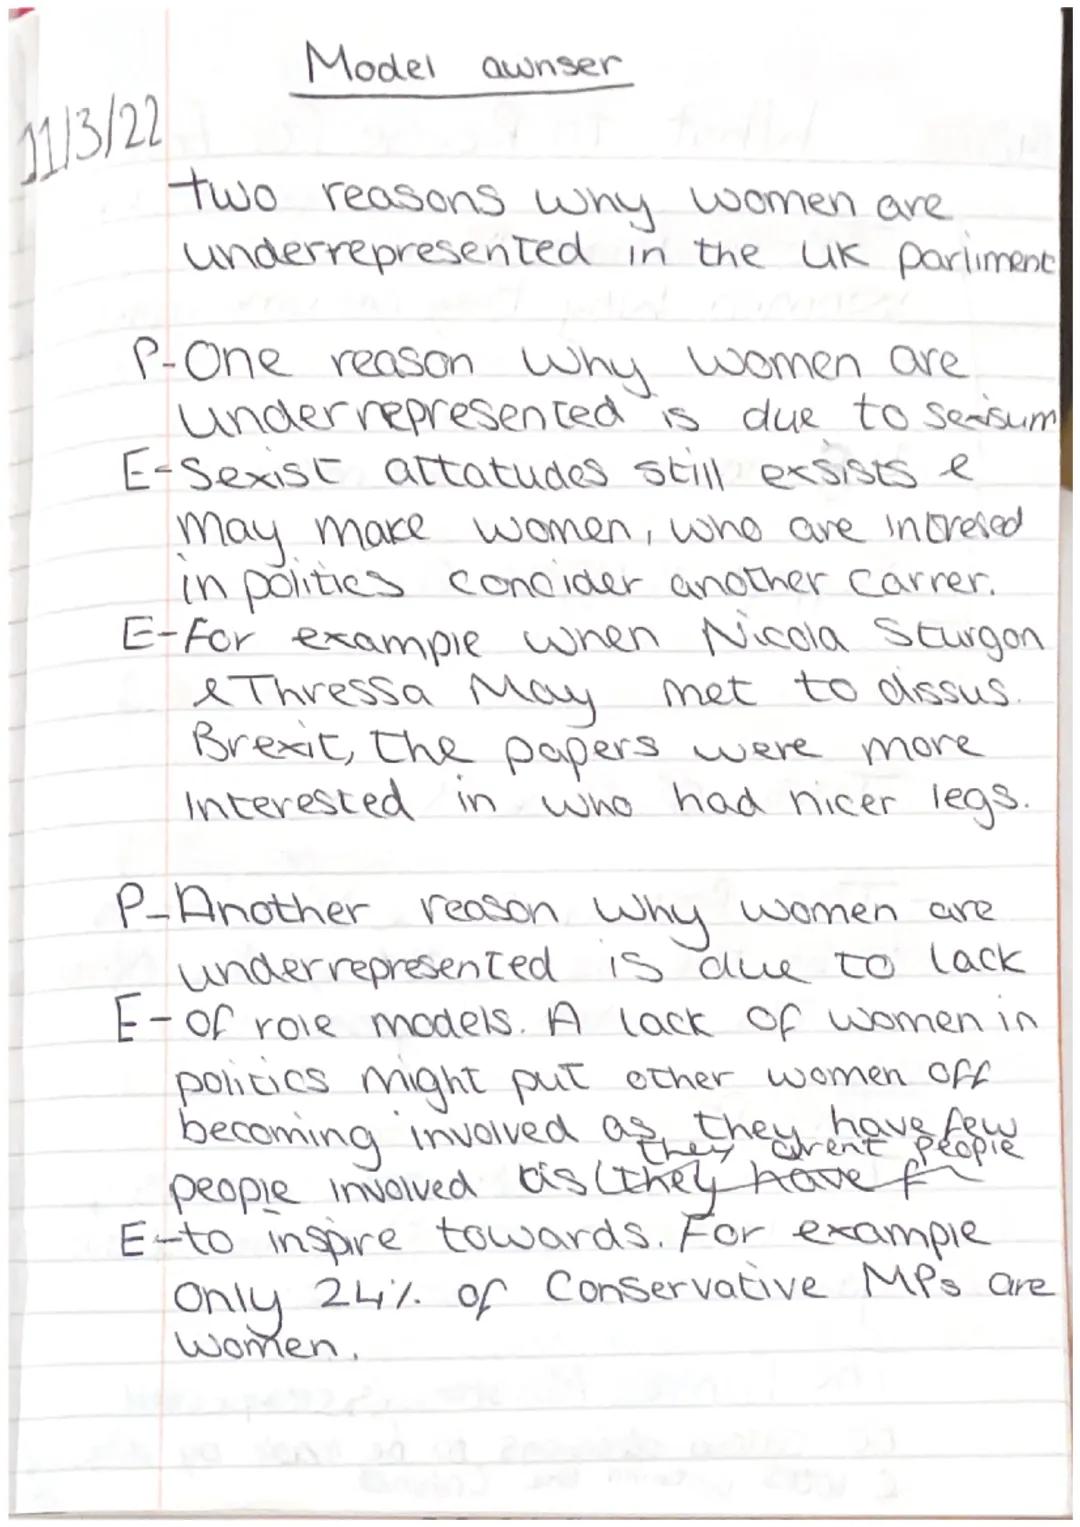 Model awnser
11/3/22
two reasons why women are
underrepresented in the UK parliment
P-One reason why women are
underrepresented is due to sexisum
E-Sexist attatudes still exsists &
may make women, who are intresed
in politics concider another carrer.
E-For example when Nicola Sturgon
& Thressa May met to dissus.
Brexit, the papers were more
interested in who had nicer legs.
P-Another reason why women are
underrepresented is due to lack
E-of role models. A lack of women in
politics might put other women off
becoming involved as they have few
they arent people
people involved as (they have f
E-to inspire towards. For example
only 24% of Conservative MPs are
women.